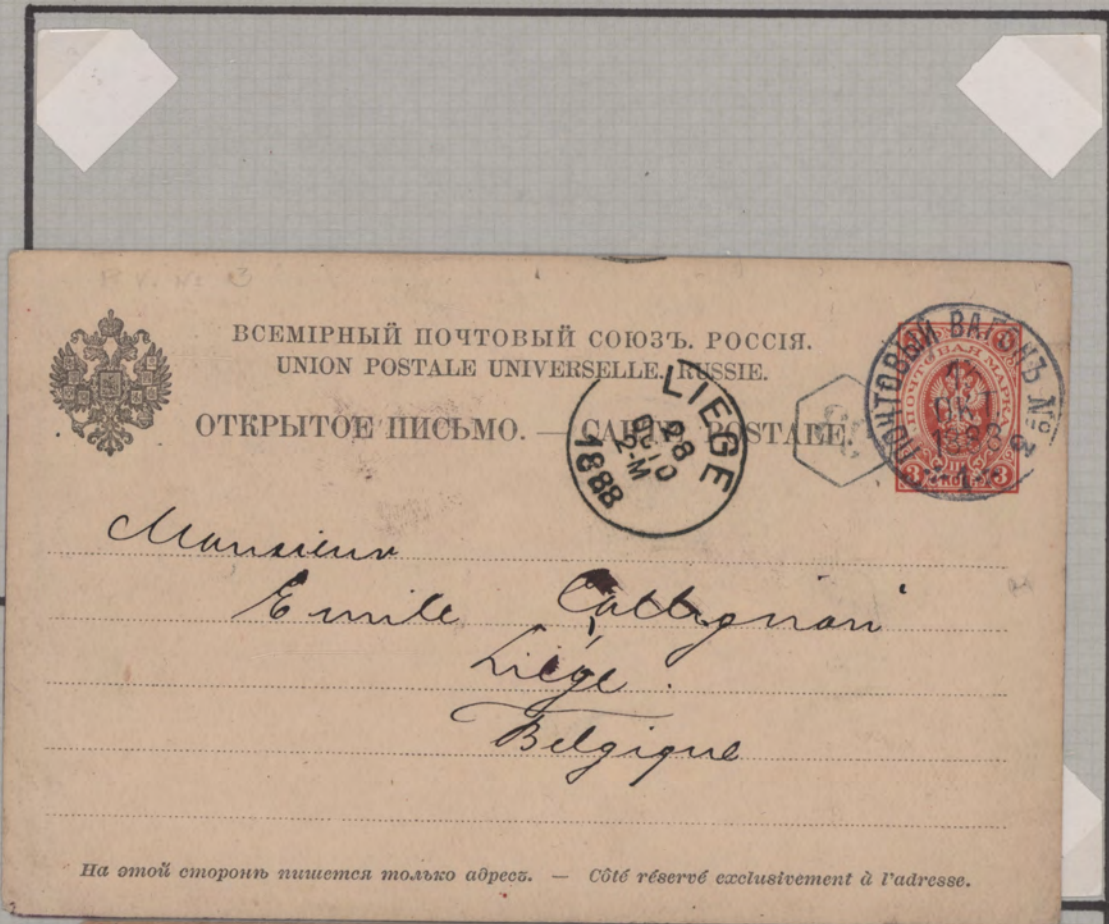 P. V. № 3
ВСЕМІРНЫЙ ПОЧТОВЫЙ СОЮЗЪ. РОССІЯ.
UNION POSTALE UNIVERSELLE. RUSSIE.
ОТКРЫТОЕ ПИСЬМО. — CARTE POSTALE.
ПОЧТОВЫЙ ВАГОНЪ № 3
ОКТ
1888
1
ПОЧТОВАЯ МАРКА
3 3
LIEGE
28
OCTO
2-M
1888
Monsieur
Emile
Liége
Belgique
На этой сторонѣ пишется только адресъ. — Côté réservé exclusivement à l'adresse.